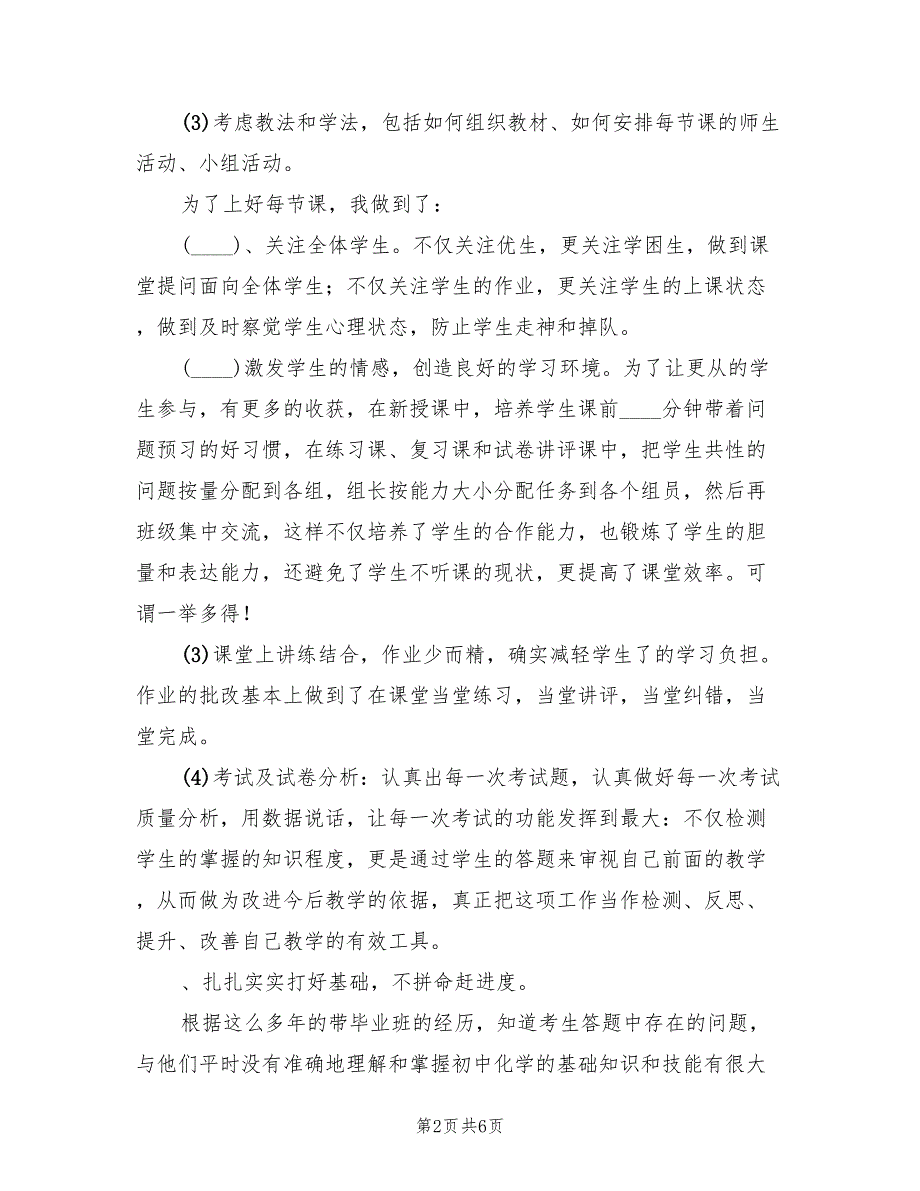 (3)考虑教法和学法，包括如何组织教材、如何安排每节课的师生
活动、小组活动。
为了上好每节课，我做到了：
(____)、关注全体学生。不仅关注优生，更关注学困生，做到课
堂提问面向全体学生；不仅关注学生的作业，更关注学生的上课状态
，做到及时察觉学生心理状态，防止学生走神和掉队。
(____)激发学生的情感，创造良好的学习环境。为了让更从的学
生参与，有更多的收获，在新授课中，培养学生课前____分钟带着问
题预习的好习惯，在练习课、复习课和试卷讲评课中，把学生共性的
问题按量分配到各组，组长按能力大小分配任务到各个组员，然后再
班级集中交流，这样不仅培养了学生的合作能力，也锻炼了学生的胆
量和表达能力，还避免了学生不听课的现状，更提高了课堂效率。可
谓一举多得！
(3)课堂上讲练结合，作业少而精，确实减轻学生了的学习负担。
作业的批改基本上做到了在课堂当堂练习，当堂讲评，当堂纠错，当
堂完成。
(4)考试及试卷分析：认真出每一次考试题，认真做好每一次考试
质量分析，用数据说话，让每一次考试的功能发挥到最大：不仅检测
学生的掌握的知识程度，更是通过学生的答题来审视自己前面的教学
，从而做为改进今后教学的依据，真正把这项工作当作检测、反思、
提升、改善自己教学的有效工具。
、扎扎实实打好基础，不拼命赶进度。
根据这么多年的带毕业班的经历，知道考生答题中存在的问题，
与他们平时没有准确地理解和掌握初中化学的基础知识和技能有很大
第2页共6页